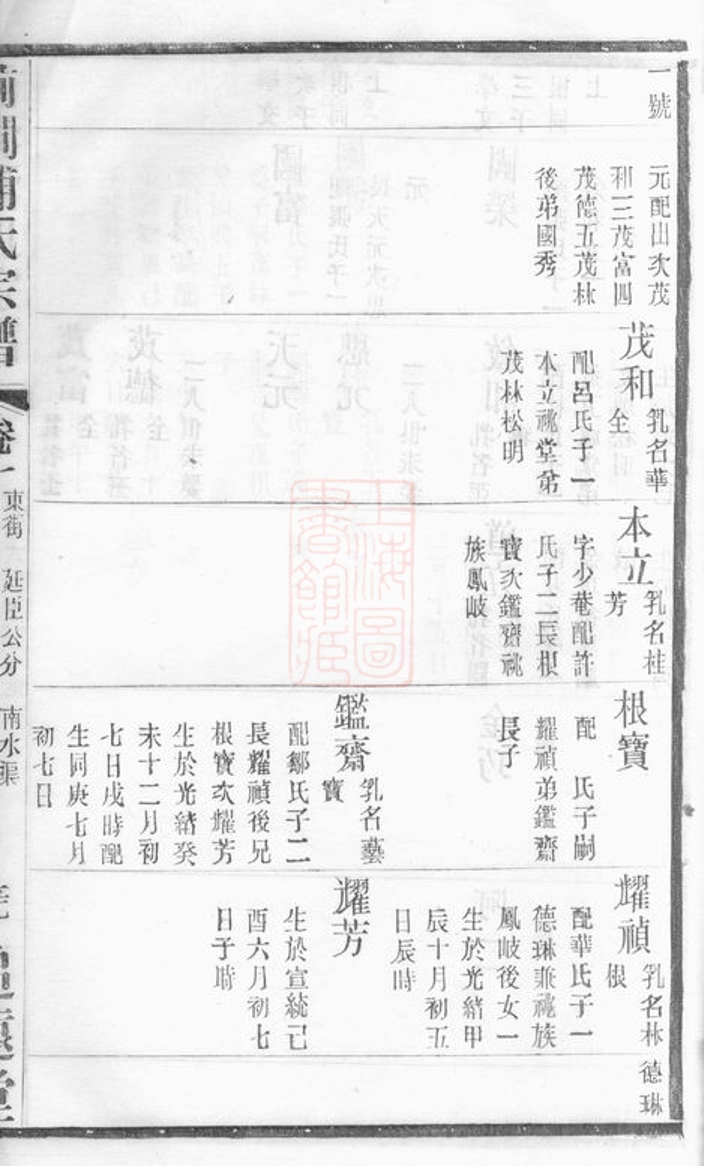 一號
元配山次茂
和三茂富四
茂德五茂林
後弟國秀
茂和
乳名華
全
配呂氏子一
本立祧堂弟
茂林松明
本立
乳名桂
芳
字少菴配許
氏子二長根
寶次鑑齋祧
族鳳岐
根寶
配　氏子嗣
耀禎弟鑑齋
長子
鑑齋
乳名藝
寶
配鄒氏子二
長耀禎後兄
根寶次耀芳
生於光緒癸
未十二月初
七日戌時配
生同庚七月
初七日
耀禎
乳名林
根
配華氏子一
德琳兼祧族
鳳岐後女一
生於光緒甲
辰十月初五
日辰時
耀芳
生於宣統己
酉六月初七
日子時
德琳
前澗浦氏宗譜
卷十
東街
延臣公分
南水渠
追遠堂
上海圖書館藏